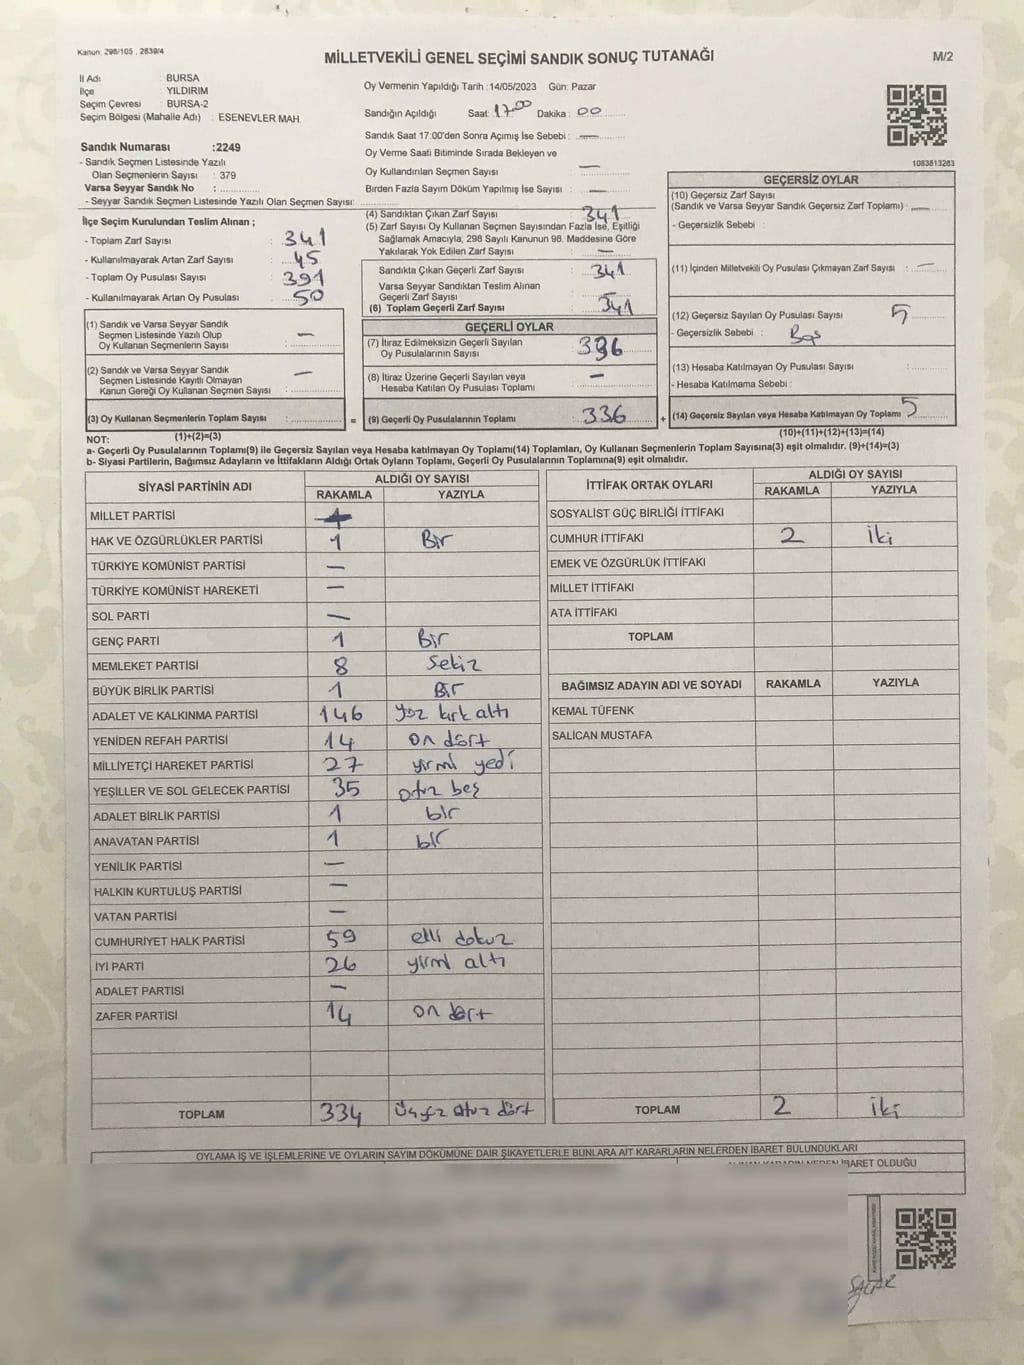 Kanun: 298/105 , 2839/4
MİLLETVEKİLİ GENEL SEÇİMİ SANDIK SONUÇ TUTANAĞI
M/2
İl Adı : BURSA
İlçe : YILDIRIM
Seçim Çevresi : BURSA-2
Seçim Bölgesi (Mahalle Adı) : ESENEVLER MAH.
Sandık Numarası :2249
- Sandık Seçmen Listesinde Yazılı
Olan Seçmenlerin Sayısı : 379
Varsa Seyyar Sandık No :
- Seyyar Sandık Seçmen Listesinde Yazılı Olan Seçmen Sayısı:
Oy Vermenin Yapıldığı Tarih :14/05/2023 Gün: Pazar
Sandığın Açıldığı Saat: 17:00 Dakika : 00
Sandık Saat 17:00'den Sonra Açımış İse Sebebi : —
Oy Verme Saati Bitiminde Sırada Bekleyen ve
Oy Kullandırılan Seçmen Sayısı —
Birden Fazla Sayım Döküm Yapılmış İse Sayısı : —
1083813283
İlçe Seçim Kurulundan Teslim Alınan ;
- Toplam Zarf Sayısı : 341
- Kullanılmayarak Artan Zarf Sayısı : 45
- Toplam Oy Pusulası Sayısı : 391
- Kullanılmayarak Artan Oy Pusulası : 50
(1) Sandık ve Varsa Seyyar Sandık
Seçmen Listesinde Yazılı Olup
Oy Kullanan Seçmenlerin Sayısı : —
(2) Sandık ve Varsa Seyyar Sandık
Seçmen Listesinde Kayıtlı Olmayan
Kanun Gereği Oy Kullanan Seçmen Sayısı : —
(3) Oy Kullanan Seçmenlerin Toplam Sayısı :
(1)+(2)=(3)
(4) Sandıktan Çıkan Zarf Sayısı : 341
(5) Zarf Sayısı Oy Kullanan Seçmen Sayısından Fazla İse, Eşitliği
Sağlamak Amacıyla, 298 Sayılı Kanunun 98. Maddesine Göre
Yakılarak Yok Edilen Zarf Sayısı : —
Sandıkta Çıkan Geçerli Zarf Sayısı : 341
Varsa Seyyar Sandıktan Teslim Alınan
Geçerli Zarf Sayısı
(6) Toplam Geçerli Zarf Sayısı : 341
GEÇERLİ OYLAR
(7) İtiraz Edilmeksizin Geçerli Sayılan
Oy Pusulalarının Sayısı : 336
(8) İtiraz Üzerine Geçerli Sayılan veya
Hesaba Katılan Oy Pusulası Toplamı : —
= (9) Geçerli Oy Pusulalarının Toplamı : 336 +
GEÇERSİZ OYLAR
(10) Geçersiz Zarf Sayısı
(Sandık ve Varsa Seyyar Sandık Geçersiz Zarf Toplamı) : —
- Geçersizlik Sebebi :
(11) İçinden Milletvekili Oy Pusulası Çıkmayan Zarf Sayısı : —
(12) Geçersiz Sayılan Oy Pusulası Sayısı : 5
- Geçersizlik Sebebi :
(13) Hesaba Katılmayan Oy Pusulası Sayısı :
- Hesaba Katılmama Sebebi :
(14) Geçersiz Sayılan veya Hesaba Katılmayan Oy Toplamı : 5
(10)+(11)+(12)+(13)=(14)
NOT:
a- Geçerli Oy Pusulalarının Toplamı(9) ile Geçersiz Sayılan veya Hesaba katılmayan Oy Toplamı(14) Toplamları, Oy Kullanan Seçmenlerin Toplam Sayısına(3) eşit olmalıdır. (9)+(14)=(3)
b- Siyasi Partilerin, Bağımsız Adayların ve İttifakların Aldığı Ortak Oyların Toplamı, Geçerli Oy Pusulalarının Toplamına(9) eşit olmalıdır.
SİYASİ PARTİNİN ADI ALDIĞI OY SAYISI
RAKAMLA YAZIYLA
MİLLET PARTİSİ
HAK VE ÖZGÜRLÜKLER PARTİSİ 1 Bir
TÜRKİYE KOMÜNİST PARTİSİ —
TÜRKİYE KOMÜNİST HAREKETİ —
SOL PARTİ —
GENÇ PARTİ 1 Bir
MEMLEKET PARTİSİ 8 Sekiz
BÜYÜK BİRLİK PARTİSİ 1 Bir
ADALET VE KALKINMA PARTİSİ 146 Yüz kırk altı
YENİDEN REFAH PARTİSİ 14 on dört
MİLLİYETÇİ HAREKET PARTİSİ 27 yirmi yedi
YEŞİLLER VE SOL GELECEK PARTİSİ 35 otuz beş
ADALET BİRLİK PARTİSİ 1 bir
ANAVATAN PARTİSİ 1 bir
YENİLİK PARTİSİ —
HALKIN KURTULUŞ PARTİSİ —
VATAN PARTİSİ —
CUMHURİYET HALK PARTİSİ 59 elli dokuz
İYİ PARTİ 26 yirmi altı
ADALET PARTİSİ —
ZAFER PARTİSİ 14 on dört
TOPLAM 334 Üçyüz otuz dört
İTTİFAK ORTAK OYLARI ALDIĞI OY SAYISI
RAKAMLA YAZIYLA
SOSYALİST GÜÇ BİRLİĞİ İTTİFAKI
CUMHUR İTTİFAKI 2 iki
EMEK VE ÖZGÜRLÜK İTTİFAKI
MİLLET İTTİFAKI
ATA İTTİFAKI
TOPLAM
BAĞIMSIZ ADAYIN ADI VE SOYADI RAKAMLA YAZIYLA
KEMAL TÜFENK
SALİCAN MUSTAFA
TOPLAM 2 iki
OYLAMA İŞ VE İŞLEMLERİNE VE OYLARIN SAYIM DÖKÜMÜNE DAİR ŞİKAYETLERLE BUNLARA AİT KARARLARIN NELERDEN İBARET BULUNDUKLARI
İBARET OLDUĞU